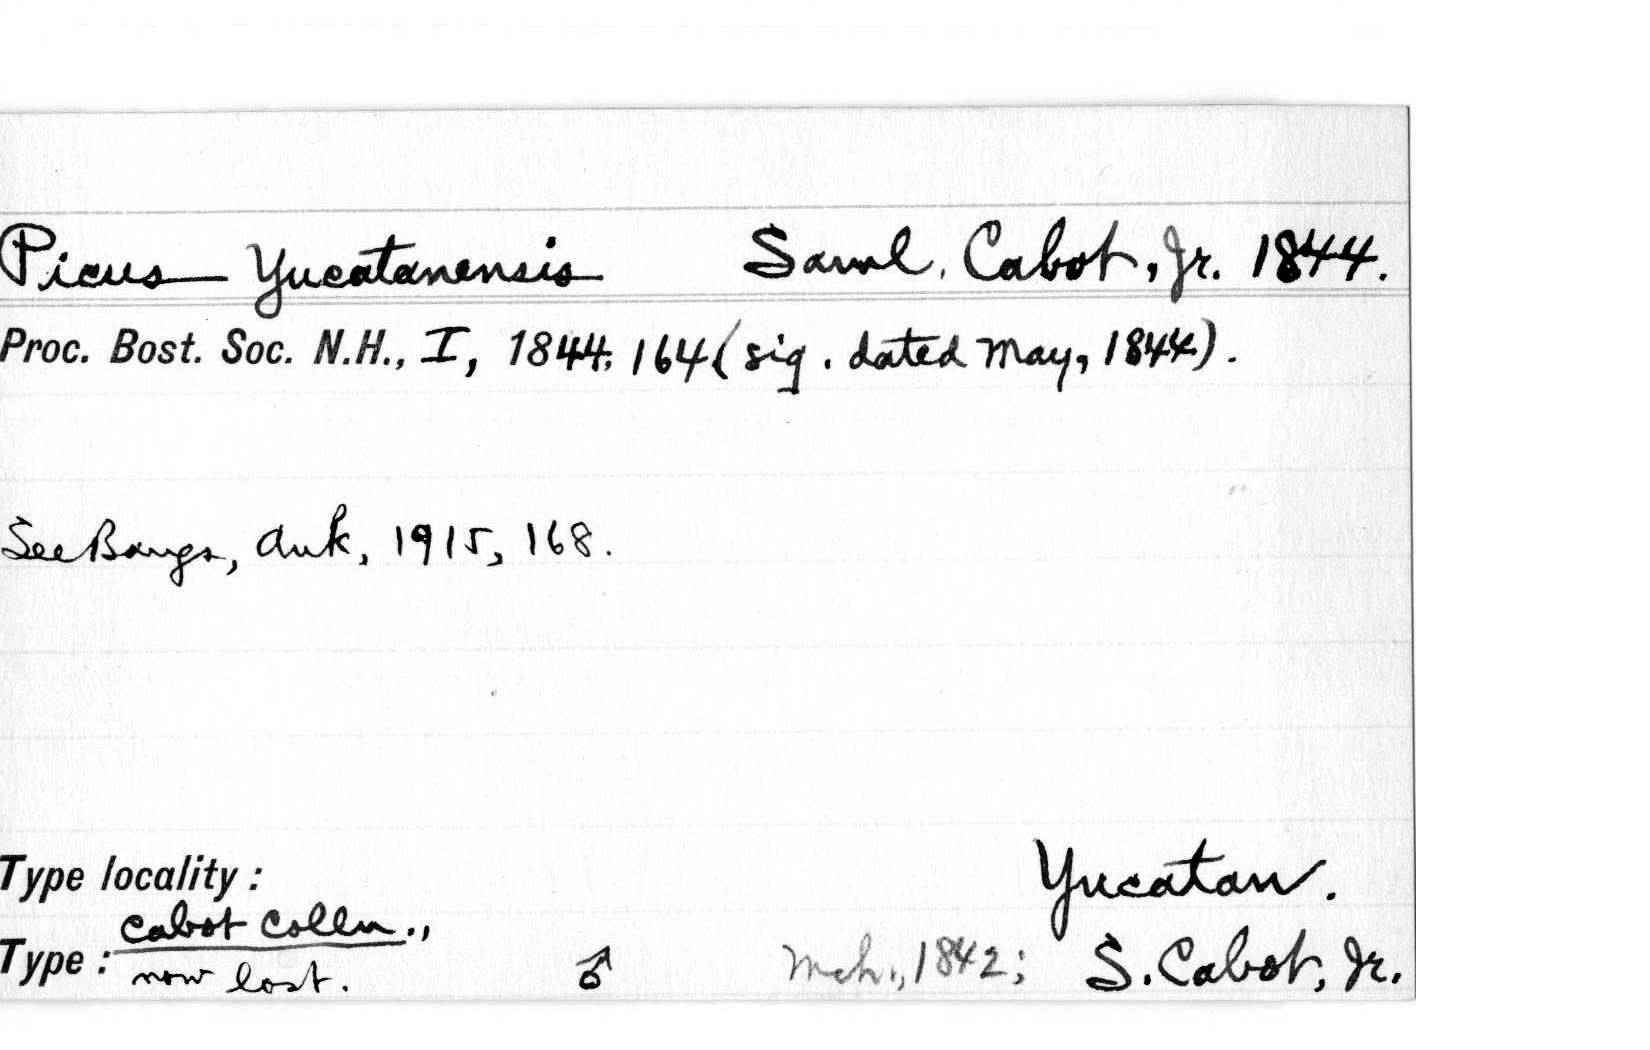 Picus Yucatanensis Saml. Cabot, Jr. 1844.
Proc. Bost. Soc. N.H., I, 1844, 164 (sig. dated May, 1844).
See Bangs, Auk, 1915, 168.
Type locality: Yucatan.
Cabot Colln.,
Type: now lost. ♂ Mch., 1842; S. Cabot, Jr.